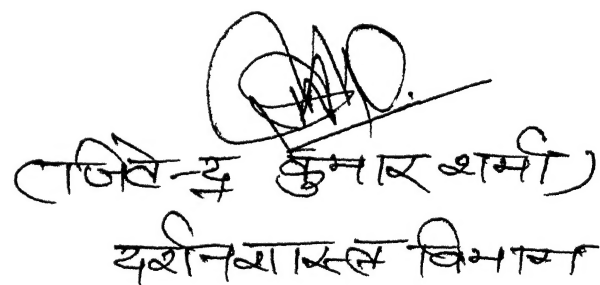 (जितेन्द्र कुमार शर्मा)
दर्शनशास्त्र विभाग